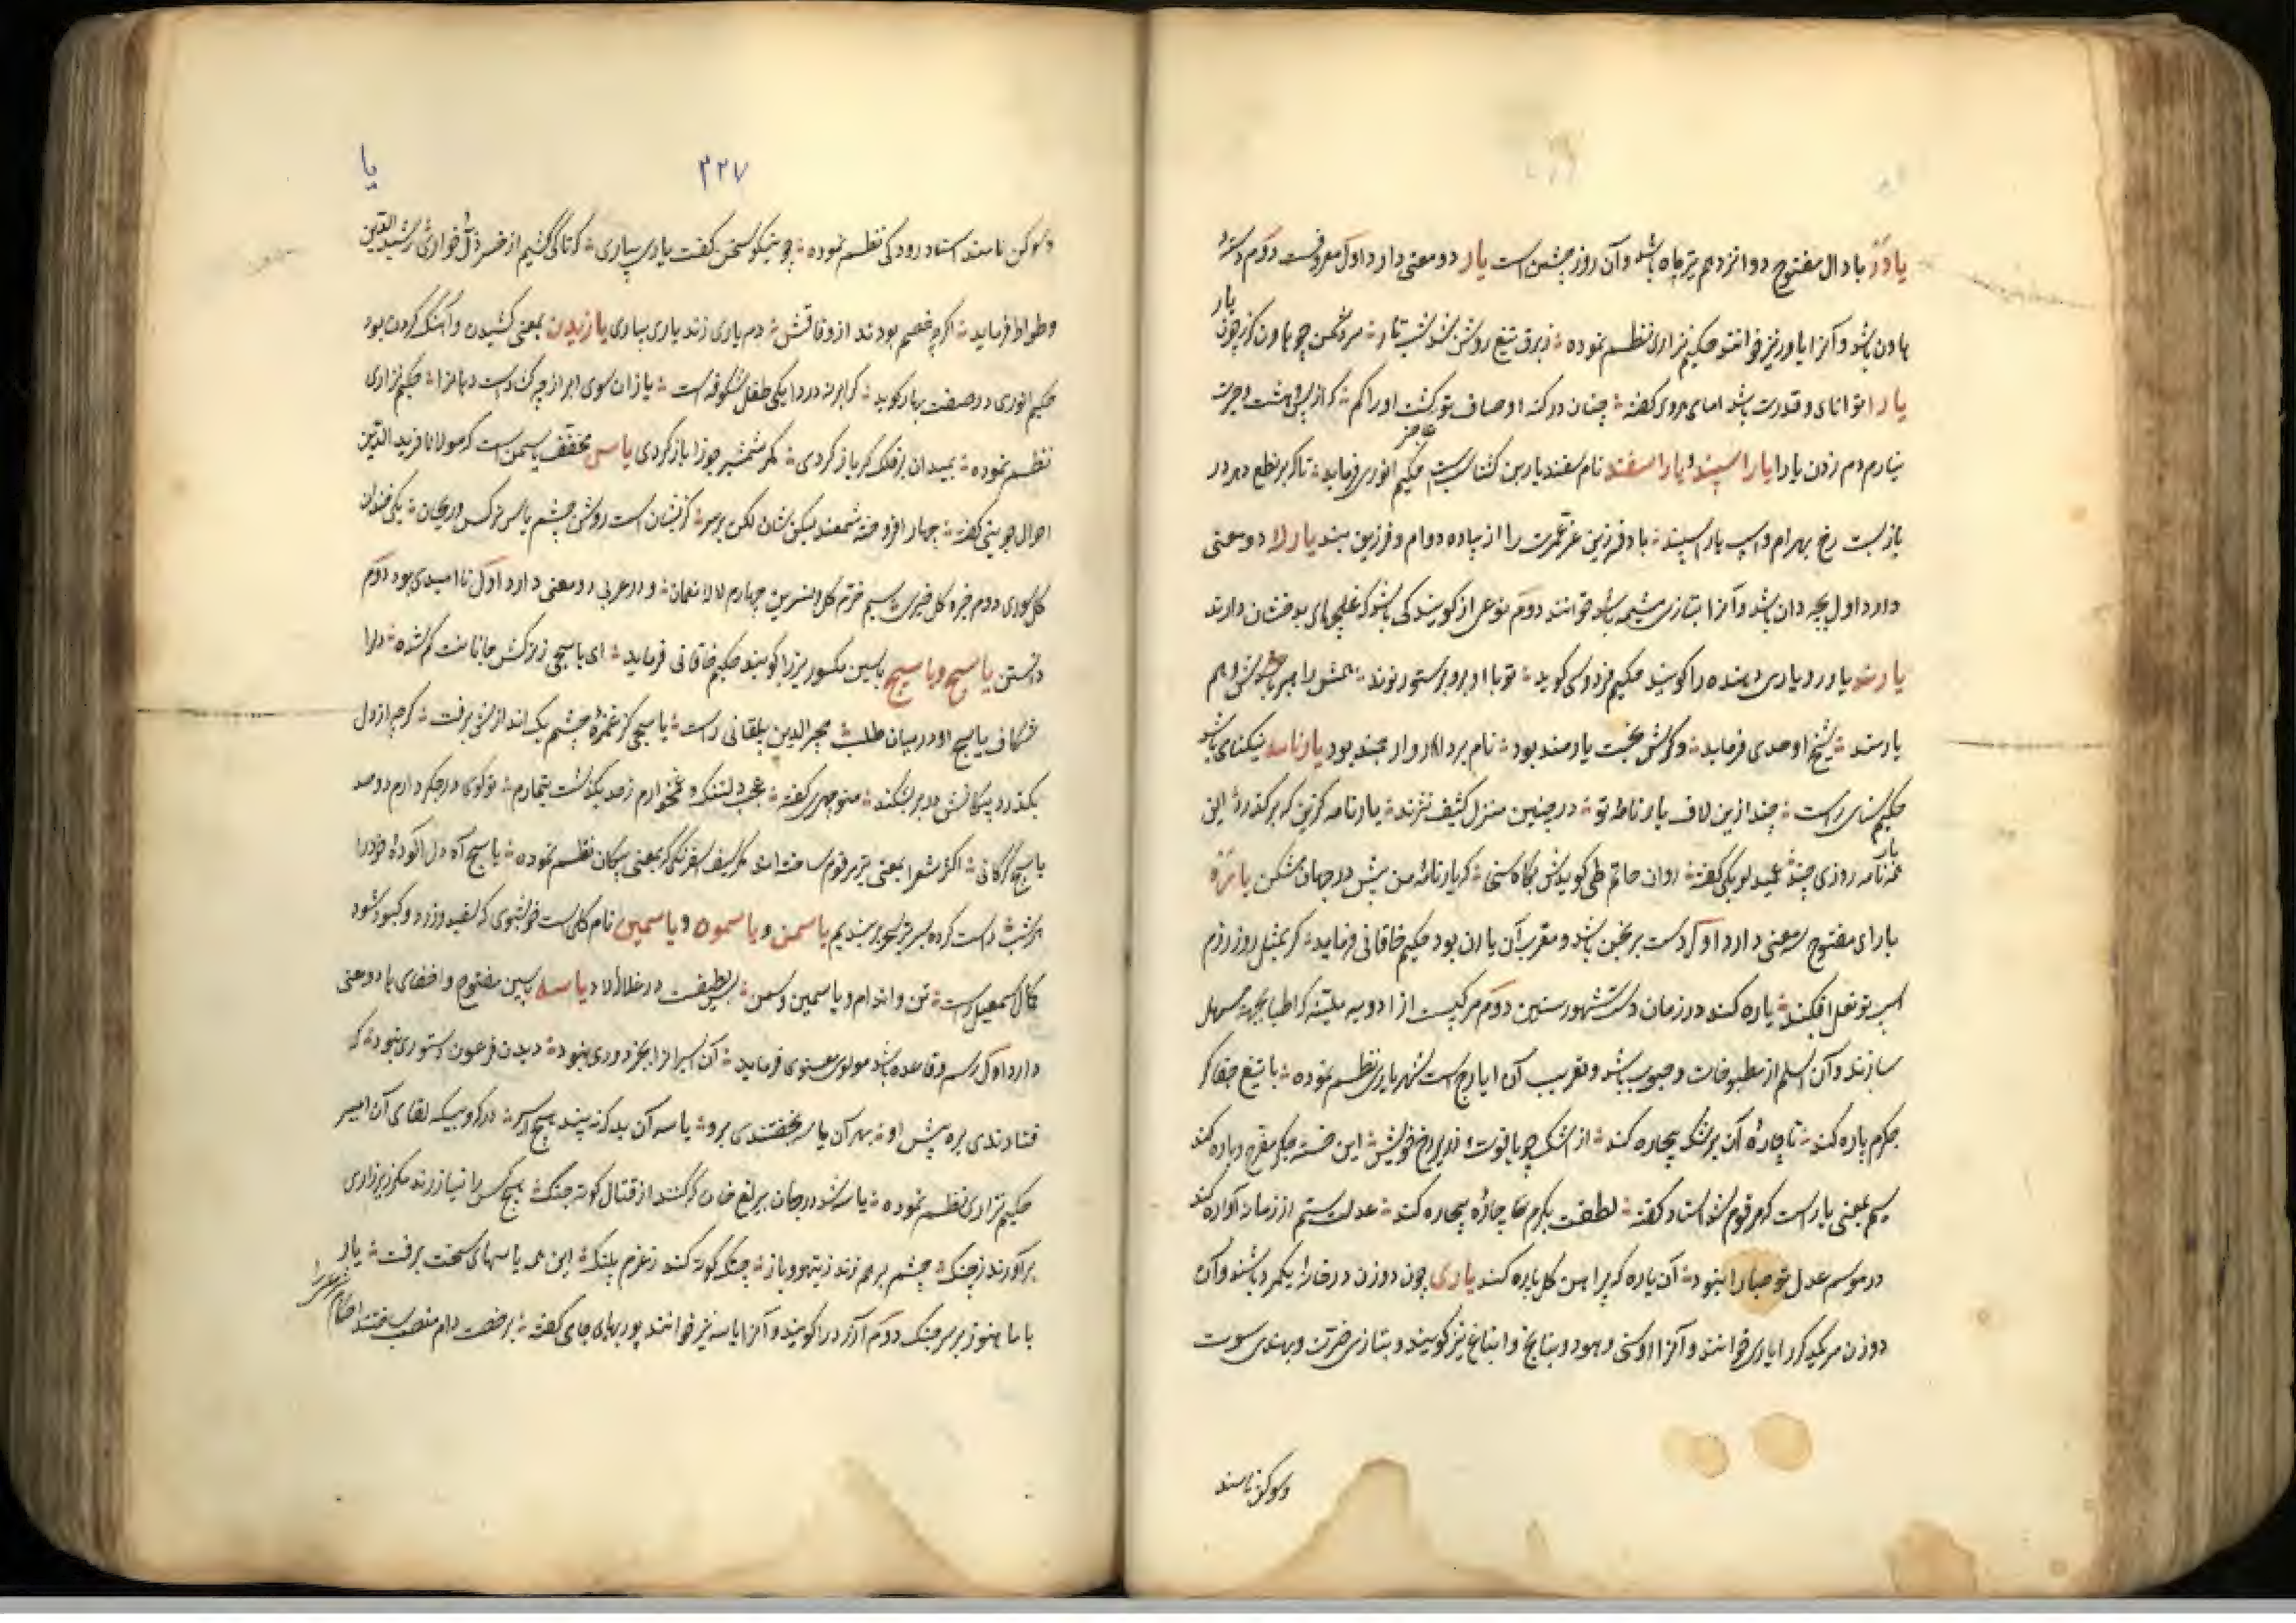 یادر با دال مفتوح دوازدهم تیرماه باشد و آن روز جشن است یار دو معنی دارد اول معروفست دوم دسته
هاون باشد و آنرا یاور نیز خوانند حکیم نزاری نظم نموده ز برق تیغ روشن شد شب تار سر دشمن چو هاون گرز چون یار
یارا توانای و قدرت باشد امامی هروی گفته چنان در کنه اوصاف تو گشت اوراکم که از
نیارم دم زدن یارا یاراسپند و یاراسفند نام اسفندیار بن گشتاسب حکیم انوری فرماید تا که بر نطع دهر در
بازیست رخ بهرام و اسپ یاراسپند باد فرزین عز عمرت را از پیاده دوام و فرزین بند یارلا دو معنی
دارد اول بچه دان باشد و آنرا بتازی مشیمه خوانند دوم نوعی از باشد که های بدخشان دارند
یارمند یاور و یاری دهنده را گویند حکیم فردوسی گوید تو با او برو
یارمند شیخ اوحدی فرماید بخت یارمند بود نام بردار و ارجمند بود یارنامه نیکنامی باشد
حکیم سنای راست چند ازین لاف یارنامه تو در چنین منزل کثیف نژند یارنامه گزین که برگذرد این
همه یارنامه روزی چند عمید لویکی گفته روان حاتم طی گویدش بگاه سخی که یارنامه من بیش در جهان مشکن یاره
با رای مفتوح سه معنی دارد اول دست برنجن باشد و معرب آن یارق بود حکیم خاقانی فرماید گر بمثل روز رزم
اسب تو نعل افکند یاره کند در زمان دست شهور سنین دوم مرکبیست از ادویه که اطبا بجهة مسهل
سازند و آن اسلم از مطبوخات و حبوب باشد و تعریب آن ایارج است شهریاری نظم نموده با تیغ جفا گر
جگرم پاره کند تا چاره آن بر من بیچاره کند از اشک چو یاقوت و زر رخ خویش این خسته جگر مفرح و یاره کند
سیم بمعنی یاراست که مرقوم شد استاد گفته لطفت بکرم چاره بیچاره کند عدلت ستم از زمانه آواره کند
در موسم عدل تو صبا را نبود آن یاره که پیراهن گل پاره کند یاری چون دو زن در خانه یکمرد باشند و آن
دو زن مر یکدیگر را یاری خوانند و آنرا اوسنی و هموو و بناغ و انباغ نیز گویند و بتازی ضرت و بهندی سوت
وسوکن نامند
۳۲۷
یا
وسوکن نامند استاد رودکی نظم نموده چو نیکو سخن گفت یاری بیاری که تا کی کشیم از خسر ذل و خواری رشیدالدین
وطواط فرماید اگرچه خصم بودند از وفاقش دم یاری زند یاری بیاری یازیدن بمعنی کشیدن و آهنگ کردن بود
حکیم انوری در صفت بهار گوید گر ابر نه در دایگی طفل شکوفه است یازان سوی ابر از چه گشادست دهانرا حکیم نزاری
نظم نموده بمیدان بر فلک گر یاز کردی کمر شمشیر جوزا باز کردی یاس مخفف یاسمن است که مولانا فریدالدین
احوال جوینی گفته چهار افروخته شمعند بیکن شان لگن بر سر کزیشان است روشن چشم یاس و نرگس و ریحان یکی خندان
گل سوری دوم خیره گل خیری سیم خرم گل نسرین چهارم لاله نعمان و در عربی دو معنی دارد اول ناامیدی بود دوم
دانستن یاسج و یاسیج باسین مکسور تیر را گویند حکیم خاقانی فرماید ای یاسجی ز ترکش جانانت گم شده دلرا
شکاف یاسج او در میان طلب مجیرالدین بیلقانی راست یاسجی کز غمزه چشم یک اندازش برفت گرچه از دل
بگذرد پیکانش در بر بشکند منوچهری گفته عجب دلتنگ و غمخوارم ز حد بگذشت تیمارم تو گوی در جگر دارم دو صد
یاسج گرگانی اکثر شعرا بمعنی تیر مرقوم ساخته اند مگر سیف اسفرنگی که بمعنی پیکان نظم نموده یاسج آه دل آلوده خود را
هر شب راست کرده بسر تیر سحر بربندیم یاسمن و یاسمون و یاسمین نام گلی است خوشبوی که سفید و زرد و کبود شود
کمال اسمعیل راست تن و اندام و یاسمین و سمن بس لطیفست در خلال لاد یاسه باسین مفتوح و اخفای ها دو معنی
دارد اول رسم و قاعده باشد مولوی معنوی فرماید آن اسیرانرا بجز دوری نبود دیدن فرعون دستوری نبود که
فتادندی بره پیش او بهر آن یاسه بخفتندی برو یاسه آن بد که نه بیند هیچ اسیر در گه و بیگه لقای آن امیر
حکیم نزاری نظم نموده یاسه شد در جهان یرلغ خان که کنند از قتال کوته چنگ هیچ کس را نیازارند مگر زیر زاری
برآورند ز چنگ چشم بر هم نزند ز تیهو باز چنگ کوته کند ز غرم پلنگ این همه یاسهای سخت برفت یار
با ما هنوز بر سر جنگ دوم آرزو را گویند و آنرا یاسه نیز خوانند پوربهای جامی گفته